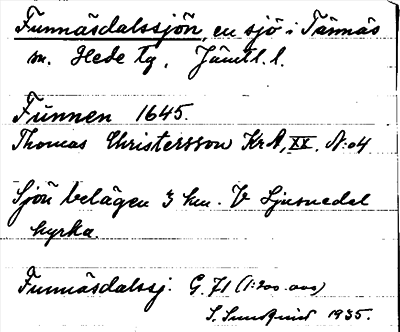 Funnäsdalssjön, en sjö i Tännäs
sn. Hede tg, Jämtl. l.
Funnen 1645.
Thomas Christersson KrA, XX, N:o4
Sjön belägen 3 km. V Ljusnedal
kyrka.
Funnäsdalssj. G. 71 (1:200.000)
S. Sundqvist 1935.